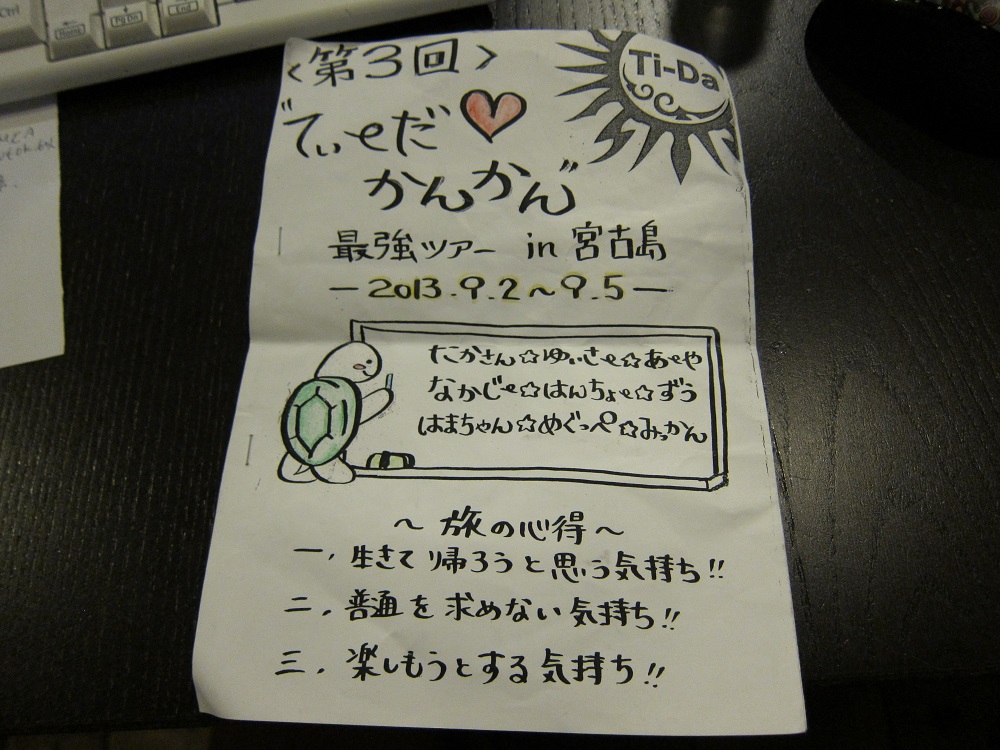 <第3回>
Ti-Da
"てぃーだ♥
かんかん"
最強ツアー in 宮古島
ー2013.9.2〜9.5ー
たかさん☆ゆいさー☆あーや
なかじー☆はんちょー☆ずう
はまちゃん☆めぐっぺ☆みっかん
〜旅の心得〜
一、生きて帰ろうと思う気持ち!!
二、普通を求めない気持ち!!
三、楽しもうとする気持ち!!
Home
PgDn
End
Ctrl